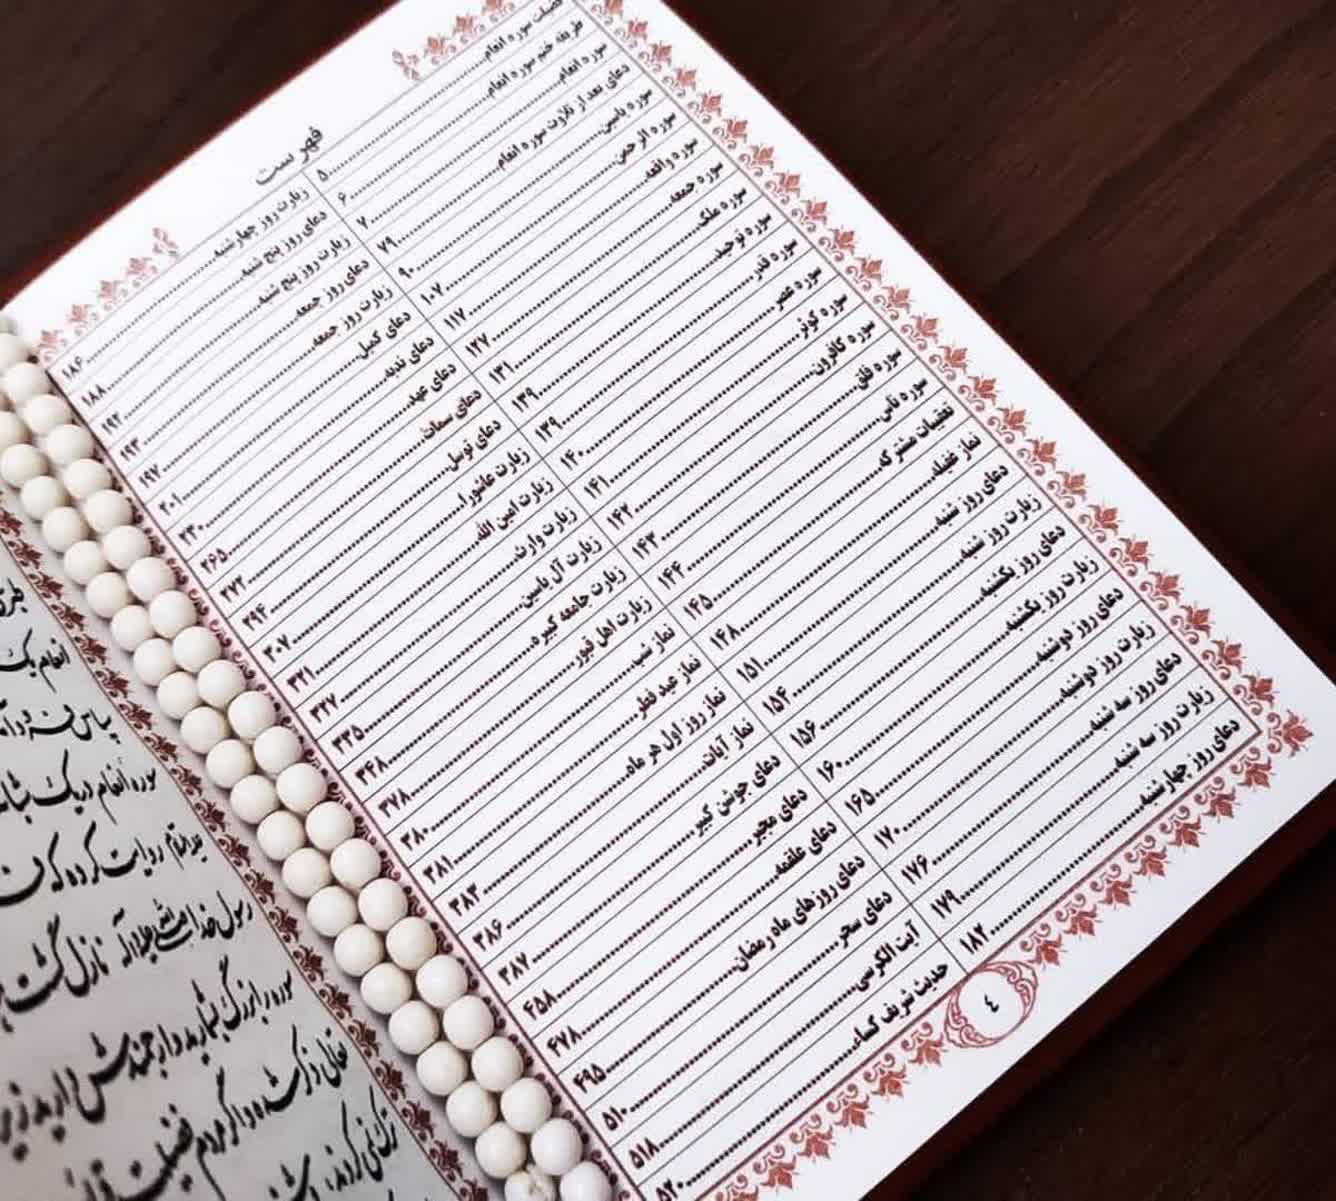 فهرست
فضیلت سوره انعام ۵
طریقه ختم سوره انعام ۶
سوره انعام ۷
دعای بعد از تلاوت سوره انعام ۷۹
سوره یاسین ۹۰
سوره الرحمن ۱۰۷
سوره واقعه ۱۱۷
سوره جمعه ۱۲۷
سوره ملک ۱۳۱
سوره توحید ۱۳۹
سوره قدر ۱۳۹
سوره عصر ۱۴۰
سوره کوثر ۱۴۱
سوره کافرون ۱۴۲
سوره فلق ۱۴۳
سوره ناس ۱۴۴
تعقیبات مشترکه ۱۴۵
نماز غفیله ۱۴۸
دعای روز شنبه ۱۵۱
زیارت روز شنبه ۱۵۴
دعای روز یکشنبه ۱۵۶
زیارت روز یکشنبه ۱۶۰
دعای روز دوشنبه ۱۶۵
زیارت روز دوشنبه ۱۷۰
دعای روز سه شنبه ۱۷۶
زیارت روز سه شنبه ۱۷۹
دعای روز چهارشنبه ۱۸۲
زیارت روز چهارشنبه ۱۸۶
دعای روز پنج شنبه ۱۸۸
زیارت روز پنج شنبه ۱۹۲
دعای روز جمعه ۱۹۳
زیارت روز جمعه ۱۹۷
دعای کمیل ۲۰۱
دعای ندبه
دعای عهد ۲۶۵
دعای سمات ۲۷۲
دعای توسل ۲۹۴
زیارت عاشورا ۳۰۷
زیارت امین الله ۳۲۱
زیارت وارث ۳۲۷
زیارت آل یاسین ۳۳۵
زیارت جامعه کبیره ۳۴۸
زیارت اهل قبور ۳۷۸
نماز شب ۳۸۰
نماز عید فطر ۳۸۱
نماز روز اول هر ماه ۳۸۳
نماز آیات ۳۸۶
دعای جوشن کبیر ۳۸۷
دعای مجیر ۴۵۸
دعای علقمه ۴۷۸
دعای روزهای ماه رمضان ۴۹۵
دعای سحر ۵۱۰
آیت الکرسی ۵۱۸
حدیث شریف کساء ۵۲۰
٤
انعام یک
سوره انعام در یک
روایت کرده که
رسول خدا صلی الله علیه و آله نازل گشت